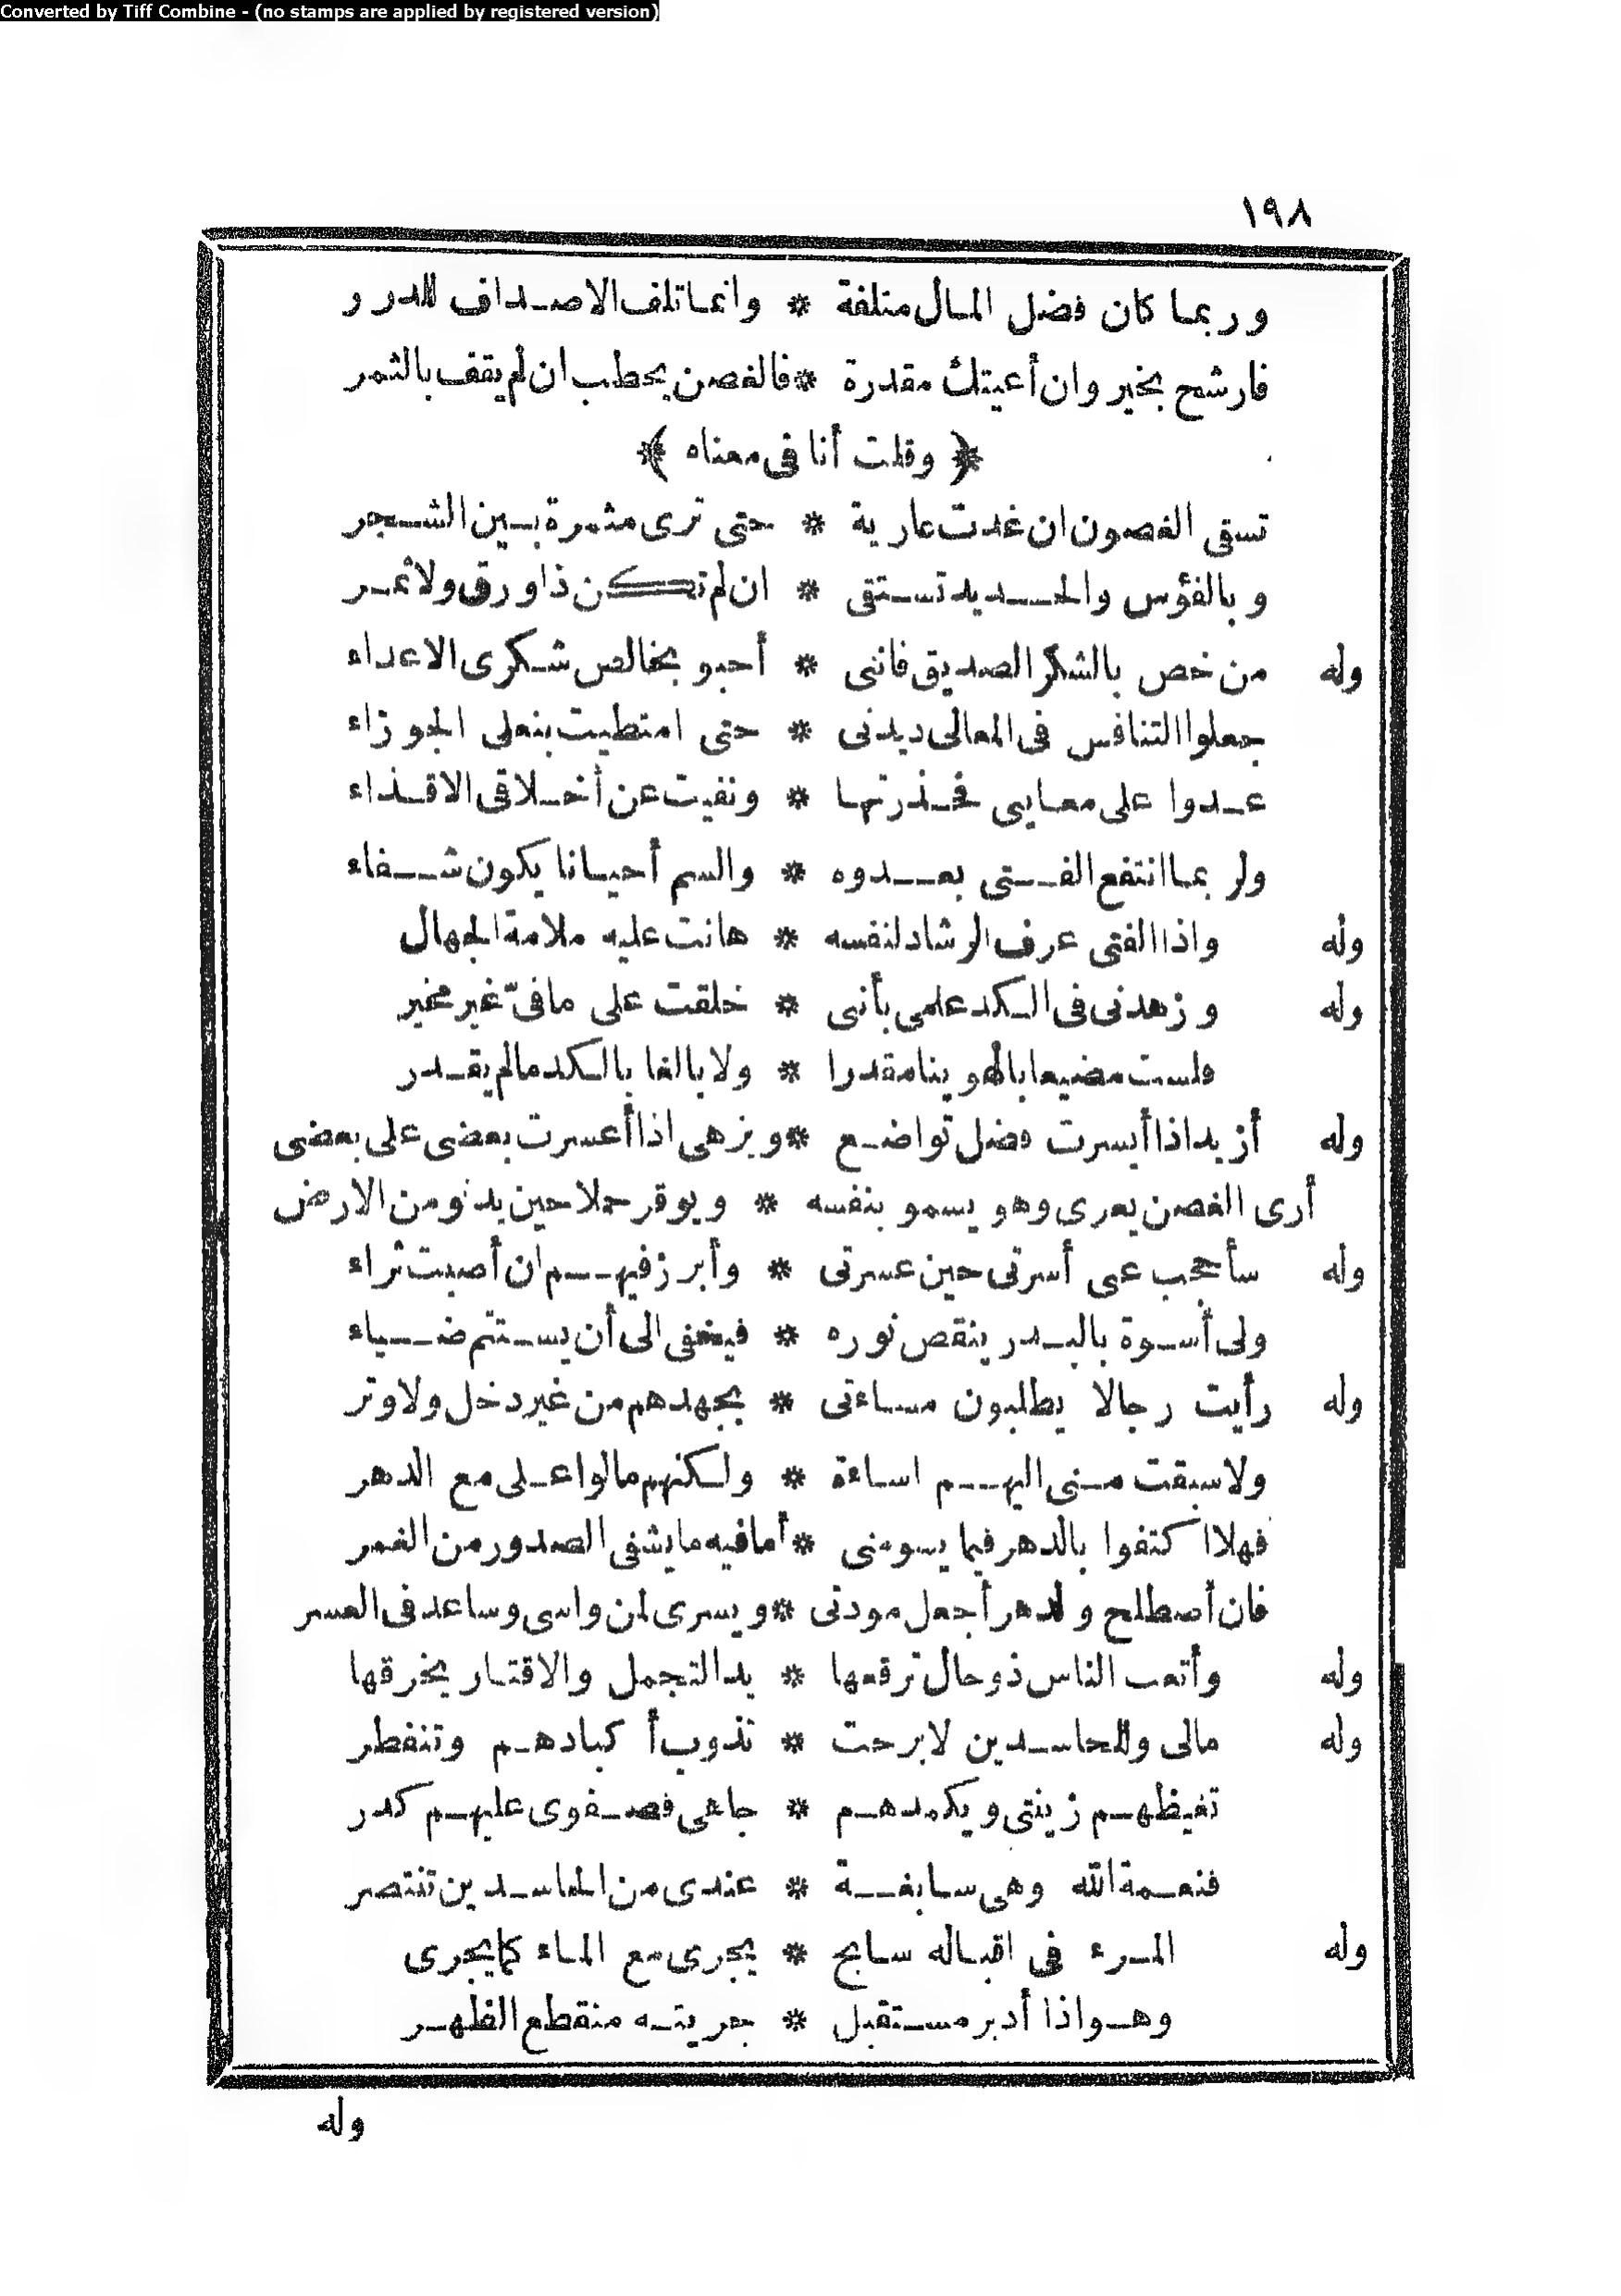 Converted by Tiff Combine - (no stamps are applied by registered version)
١٩٨
وربما كان فضل المال متلفة * وانما تلف الاصداف للدرر
فارشح بخير وان أعيتك مقدرة * فالغصن يحطب ان لم يقف بالثمر
﴿ وقلت أنا فى معناه ﴾
تسقى الغصون ان غدت عارية * حتى ترى مثمرة بين الشجر
وبالفؤس والحديد تستقى * ان لم تكن ذا ورق ولا ثمر
وله من خص بالشكر الصديق فاننى * أحبو بخالص شكرى الاعداء
جعلوا التنافس فى المعالى ديدنى * حتى امتطيت بنعلى الجوزاء
عدوا على معايبى فحذرتها * ونفيت عن أخلاقى الاقذاء
ولربما انتفع الفتى بعدوه * والسم أحيانا يكون شفاء
وله واذا الفتى عرف الرشاد لنفسه * هانت عليه ملامة الجهال
وله وزهدنى فى الكد علمى بأننى * خلقت على ما فىّ غير مخير
فلست مضيعا بالهوينا مقدرا * ولا بالغا بالكد مالم يقدر
وله أزيد اذا أيسرت فضل تواضع * ويزهى اذا أعسرت بعضى على بعضى
أرى الغصن يعرى وهو يسمو بنفسه * ويوقر حملا حين يدنو من الارض
وله سأحجب عنى أسرتى حين عسرتى * وأبرز فيهم ان أصبت ثراء
ولى أسوة بالبدر ينقص نوره * فيخفى الى أن يستتم ضياء
وله رأيت رجالا يطلبون مساءتى * بجهدهم من غير دخل ولا وتر
ولا سبقت منى اليهم اساءة * ولكنهم مالوا على مع الدهر
فهلا اكتفوا بالدهر فيما يسومنى * أما فيه ما يشفى الصدور من الغمر
فان أصطلح والدهر أجعل مودتى * ويسرى لمن واسى وساعد فى العسر
وله وأتعب الناس ذو حال ترقعها * يد التجمل والاقتار يخرقها
وله مالى وللحاسدين لا برحت * تذوب أكبادهم وتنفطر
تغيظهم زينتى ويكمدهم * جاهى فصفوى عليهم كدر
فنعمة الله وهى سابغة * عندى من الحاسدين تنتصر
وله المرء فى اقباله سابح * يجرى مع الماء كما يجرى
وهو اذا أدبر مستقبل * جريته منقطع الظهر
وله